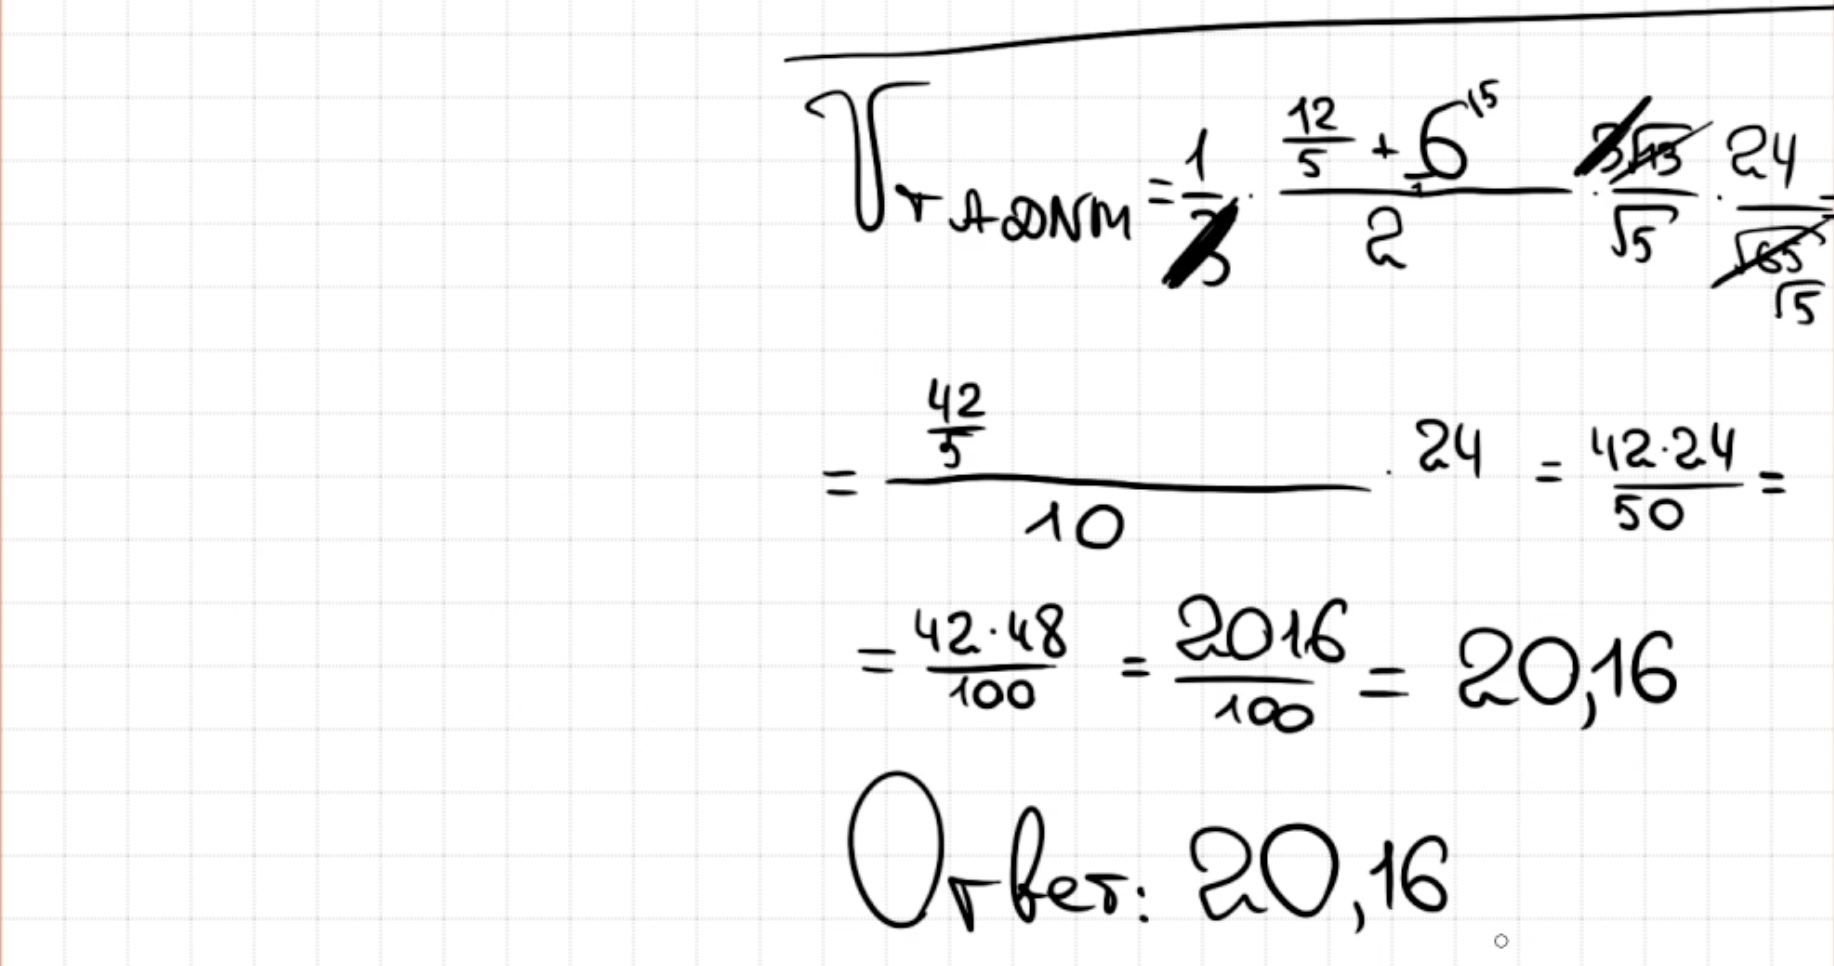 V_{TADNM} = 1/3 · (12/5 + 6^{15})/2 · 3√13/√5 · 24/√65 √5 =
= (42/5)/10 · 24 = 42·24/50 =
= 42·48/100 = 2016/100 = 20,16
Ответ: 20,16